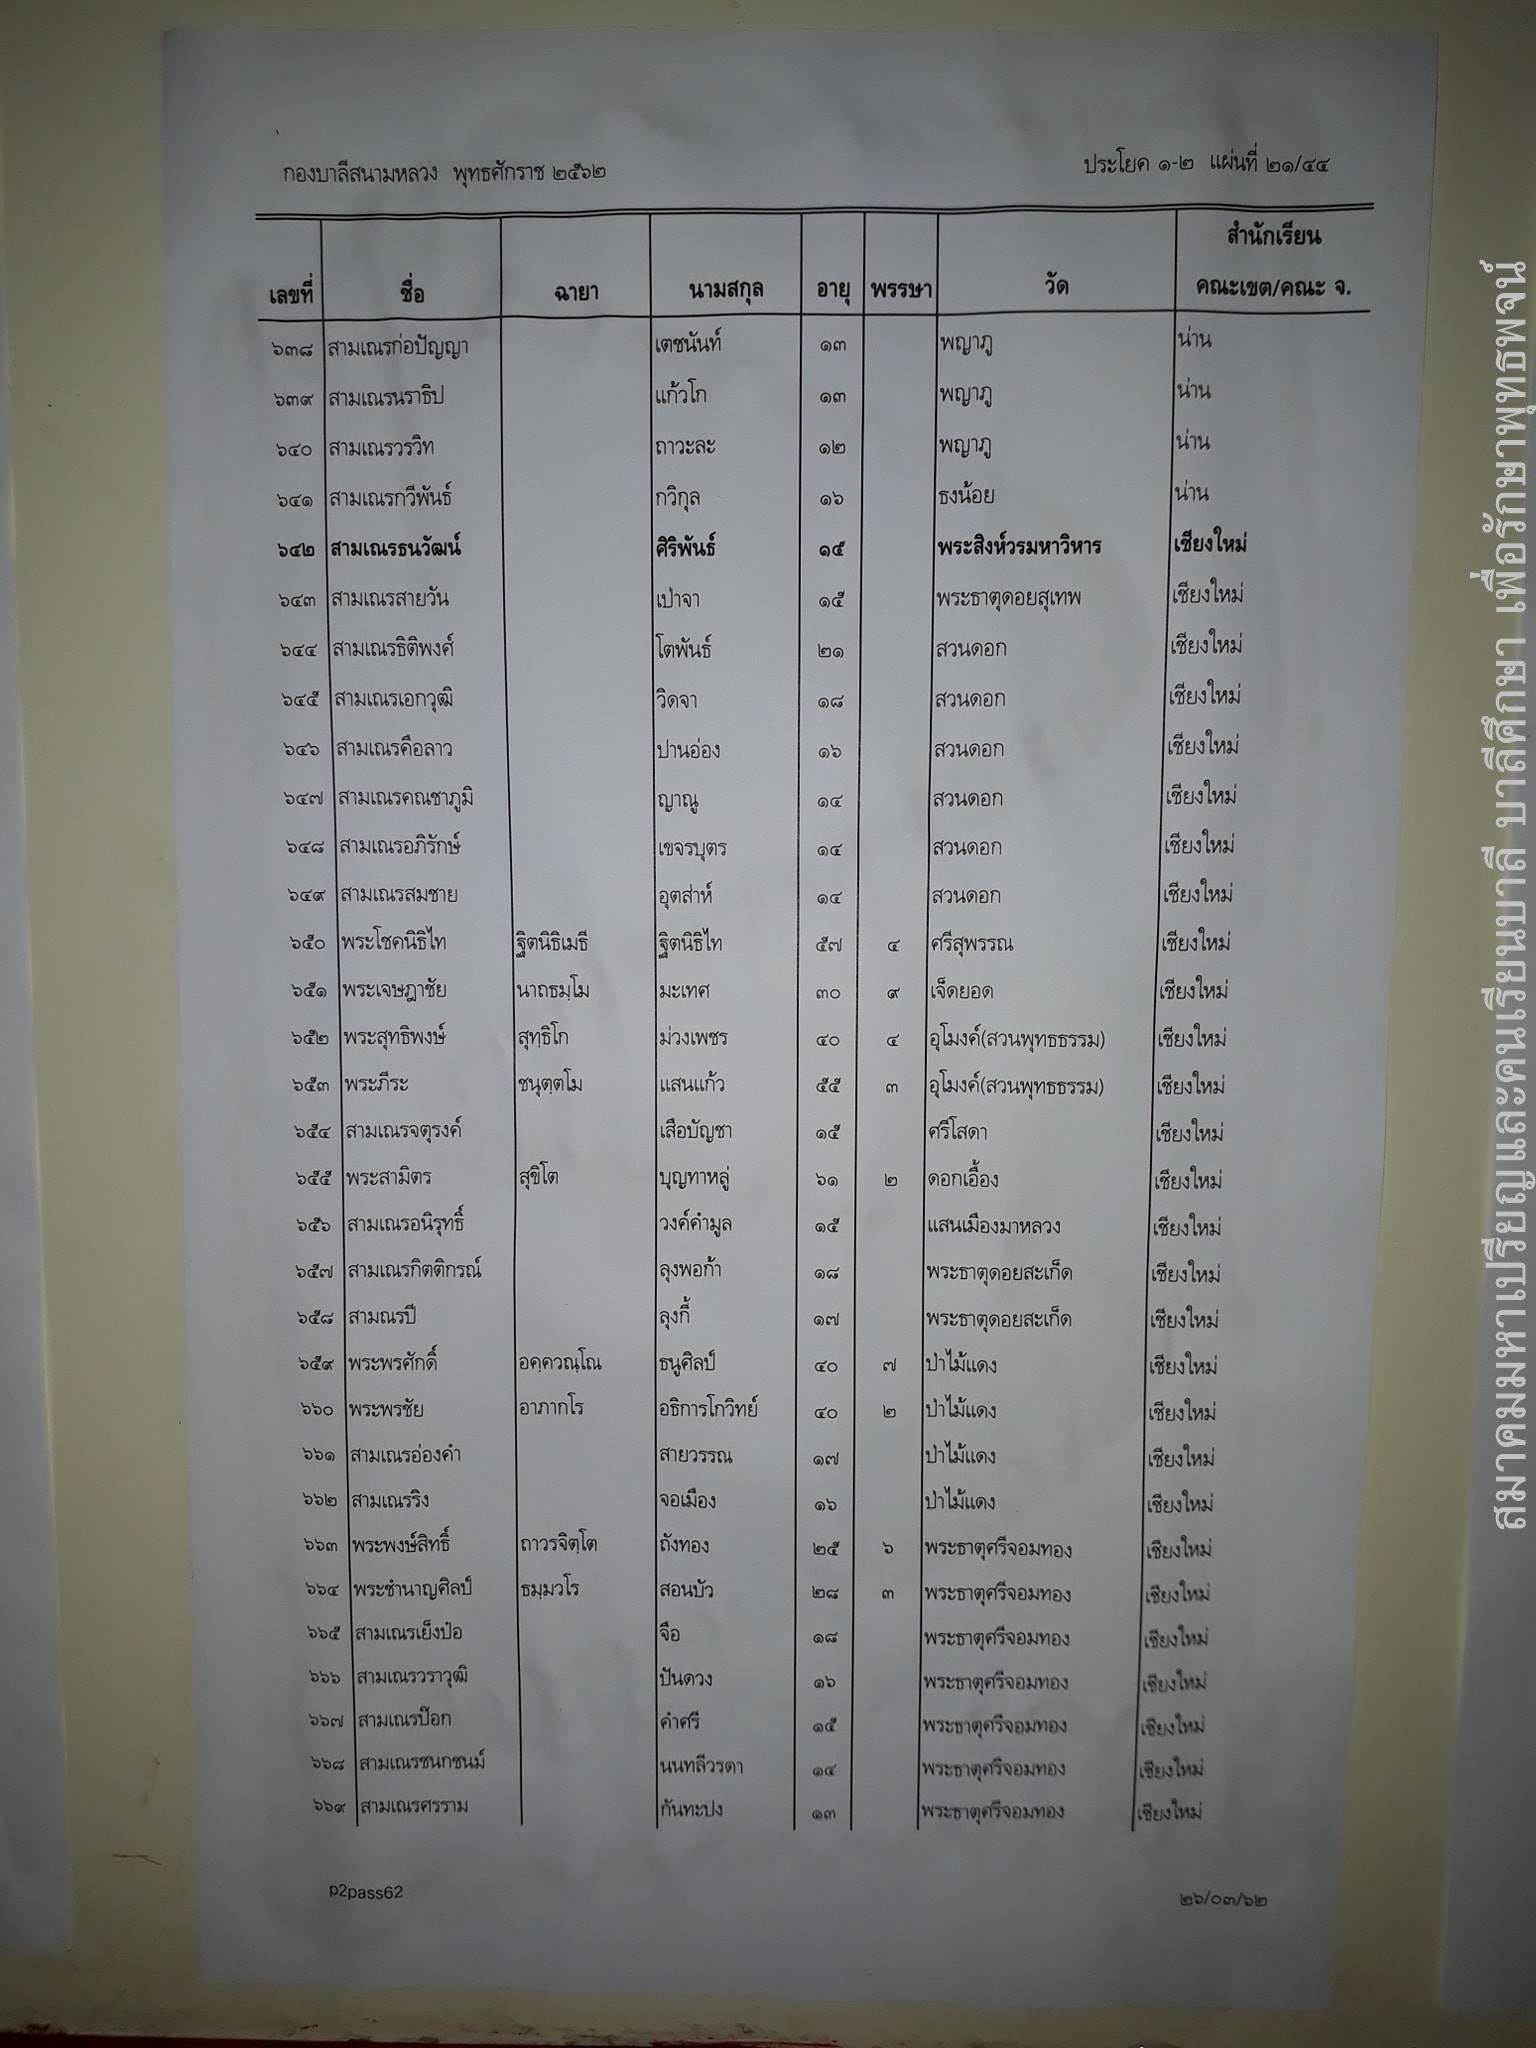 กองบาลีสนามหลวง พุทธศักราช ๒๕๖๒ ประโยค ๑-๒ แผ่นที่ ๒๑/๔๔
เลขที่ ชื่อ ฉายา นามสกุล อายุ พรรษา วัด สำนักเรียน คณะเขต/คณะ จ.
๖๓๘ สามเณรก่อปัญญา เตชนันท์ ๑๓ พญาภู น่าน
๖๓๙ สามเณรนราธิป แก้วโก ๑๓ พญาภู น่าน
๖๔๐ สามเณรวรวิท ถาวะละ ๑๒ พญาภู น่าน
๖๔๑ สามเณรกวีพันธ์ กวิกุล ๑๖ ธงน้อย น่าน
๖๔๒ สามเณรธนวัฒน์ ศิริพันธ์ ๑๕ พระสิงห์วรมหาวิหาร เชียงใหม่
๖๔๓ สามเณรสายวัน เป่าจา ๑๕ พระธาตุดอยสุเทพ เชียงใหม่
๖๔๔ สามเณรธิติพงศ์ โตพันธ์ ๒๑ สวนดอก เชียงใหม่
๖๔๕ สามเณรเอกวุฒิ วิดจา ๑๘ สวนดอก เชียงใหม่
๖๔๖ สามเณรคือลาว ปานอ่อง ๑๖ สวนดอก เชียงใหม่
๖๔๗ สามเณรคณชาภูมิ ญาณู ๑๔ สวนดอก เชียงใหม่
๖๔๘ สามเณรอภิรักษ์ เขจรบุตร ๑๔ สวนดอก เชียงใหม่
๖๔๙ สามเณรสมชาย อุตส่าห์ ๑๔ สวนดอก เชียงใหม่
๖๕๐ พระโชคนิธิไท ฐิตนิธิเมธี ฐิตนิธิไท ๕๗ ๔ ศรีสุพรรณ เชียงใหม่
๖๕๑ พระเจษฎาชัย นาถธมฺโม มะเทศ ๓๐ ๙ เจ็ดยอด เชียงใหม่
๖๕๒ พระสุทธิพงษ์ สุทฺธิโก ม่วงเพชร ๔๐ ๔ อุโมงค์(สวนพุทธธรรม) เชียงใหม่
๖๕๓ พระภีระ ชนุตฺตโม แสนแก้ว ๕๕ ๓ อุโมงค์(สวนพุทธธรรม) เชียงใหม่
๖๕๔ สามเณรจตุรงค์ เสือบัญชา ๑๕ ศรีโสดา เชียงใหม่
๖๕๕ พระสามิตร สุขิโต บุญทาหลู่ ๖๑ ๒ ดอกเอื้อง เชียงใหม่
๖๕๖ สามเณรอนิรุทธิ์ วงค์คำมูล ๑๕ แสนเมืองมาหลวง เชียงใหม่
๖๕๗ สามเณรกิตติกรณ์ ลุงพอก้า ๑๘ พระธาตุดอยสะเก็ด เชียงใหม่
๖๕๘ สามณรปี ลุงกี้ ๑๗ พระธาตุดอยสะเก็ด เชียงใหม่
๖๕๙ พระพรศักดิ์ อคฺควณฺโณ ธนูศิลป์ ๔๐ ๗ ป่าไม้แดง เชียงใหม่
๖๖๐ พระพรชัย อาภากโร อธิการโกวิทย์ ๔๐ ๒ ป่าไม้แดง เชียงใหม่
๖๖๑ สามเณรอ่องคำ สายวรรณ ๑๗ ป่าไม้แดง เชียงใหม่
๖๖๒ สามเณรริง จอเมือง ๑๖ ป่าไม้แดง เชียงใหม่
๖๖๓ พระพงษ์สิทธิ์ ถาวรจิตฺโต ถังทอง ๒๕ ๖ พระธาตุศรีจอมทอง เชียงใหม่
๖๖๔ พระชำนาญศิลป์ ธมฺมวโร สอนบัว ๒๘ ๓ พระธาตุศรีจอมทอง เชียงใหม่
๖๖๕ สามเณรเย็งป๋อ จือ ๑๘ พระธาตุศรีจอมทอง เชียงใหม่
๖๖๖ สามเณรวราวุฒิ ปันดวง ๑๖ พระธาตุศรีจอมทอง เชียงใหม่
๖๖๗ สามเณรป๊อก คำศรี ๑๕ พระธาตุศรีจอมทอง เชียงใหม่
๖๖๘ สามเณรชนกชนม์ นนทลีวรดา ๑๔ พระธาตุศรีจอมทอง เชียงใหม่
๖๖๙ สามเณรศรราม กันทะปง ๑๓ พระธาตุศรีจอมทอง เชียงใหม่
p2pass62 ๒๖/๐๓/๖๒
สมาคมมหาเปรียญและคนเรียนบาลี บาลีศึกษา เพื่อรักษาพุทธพจน์